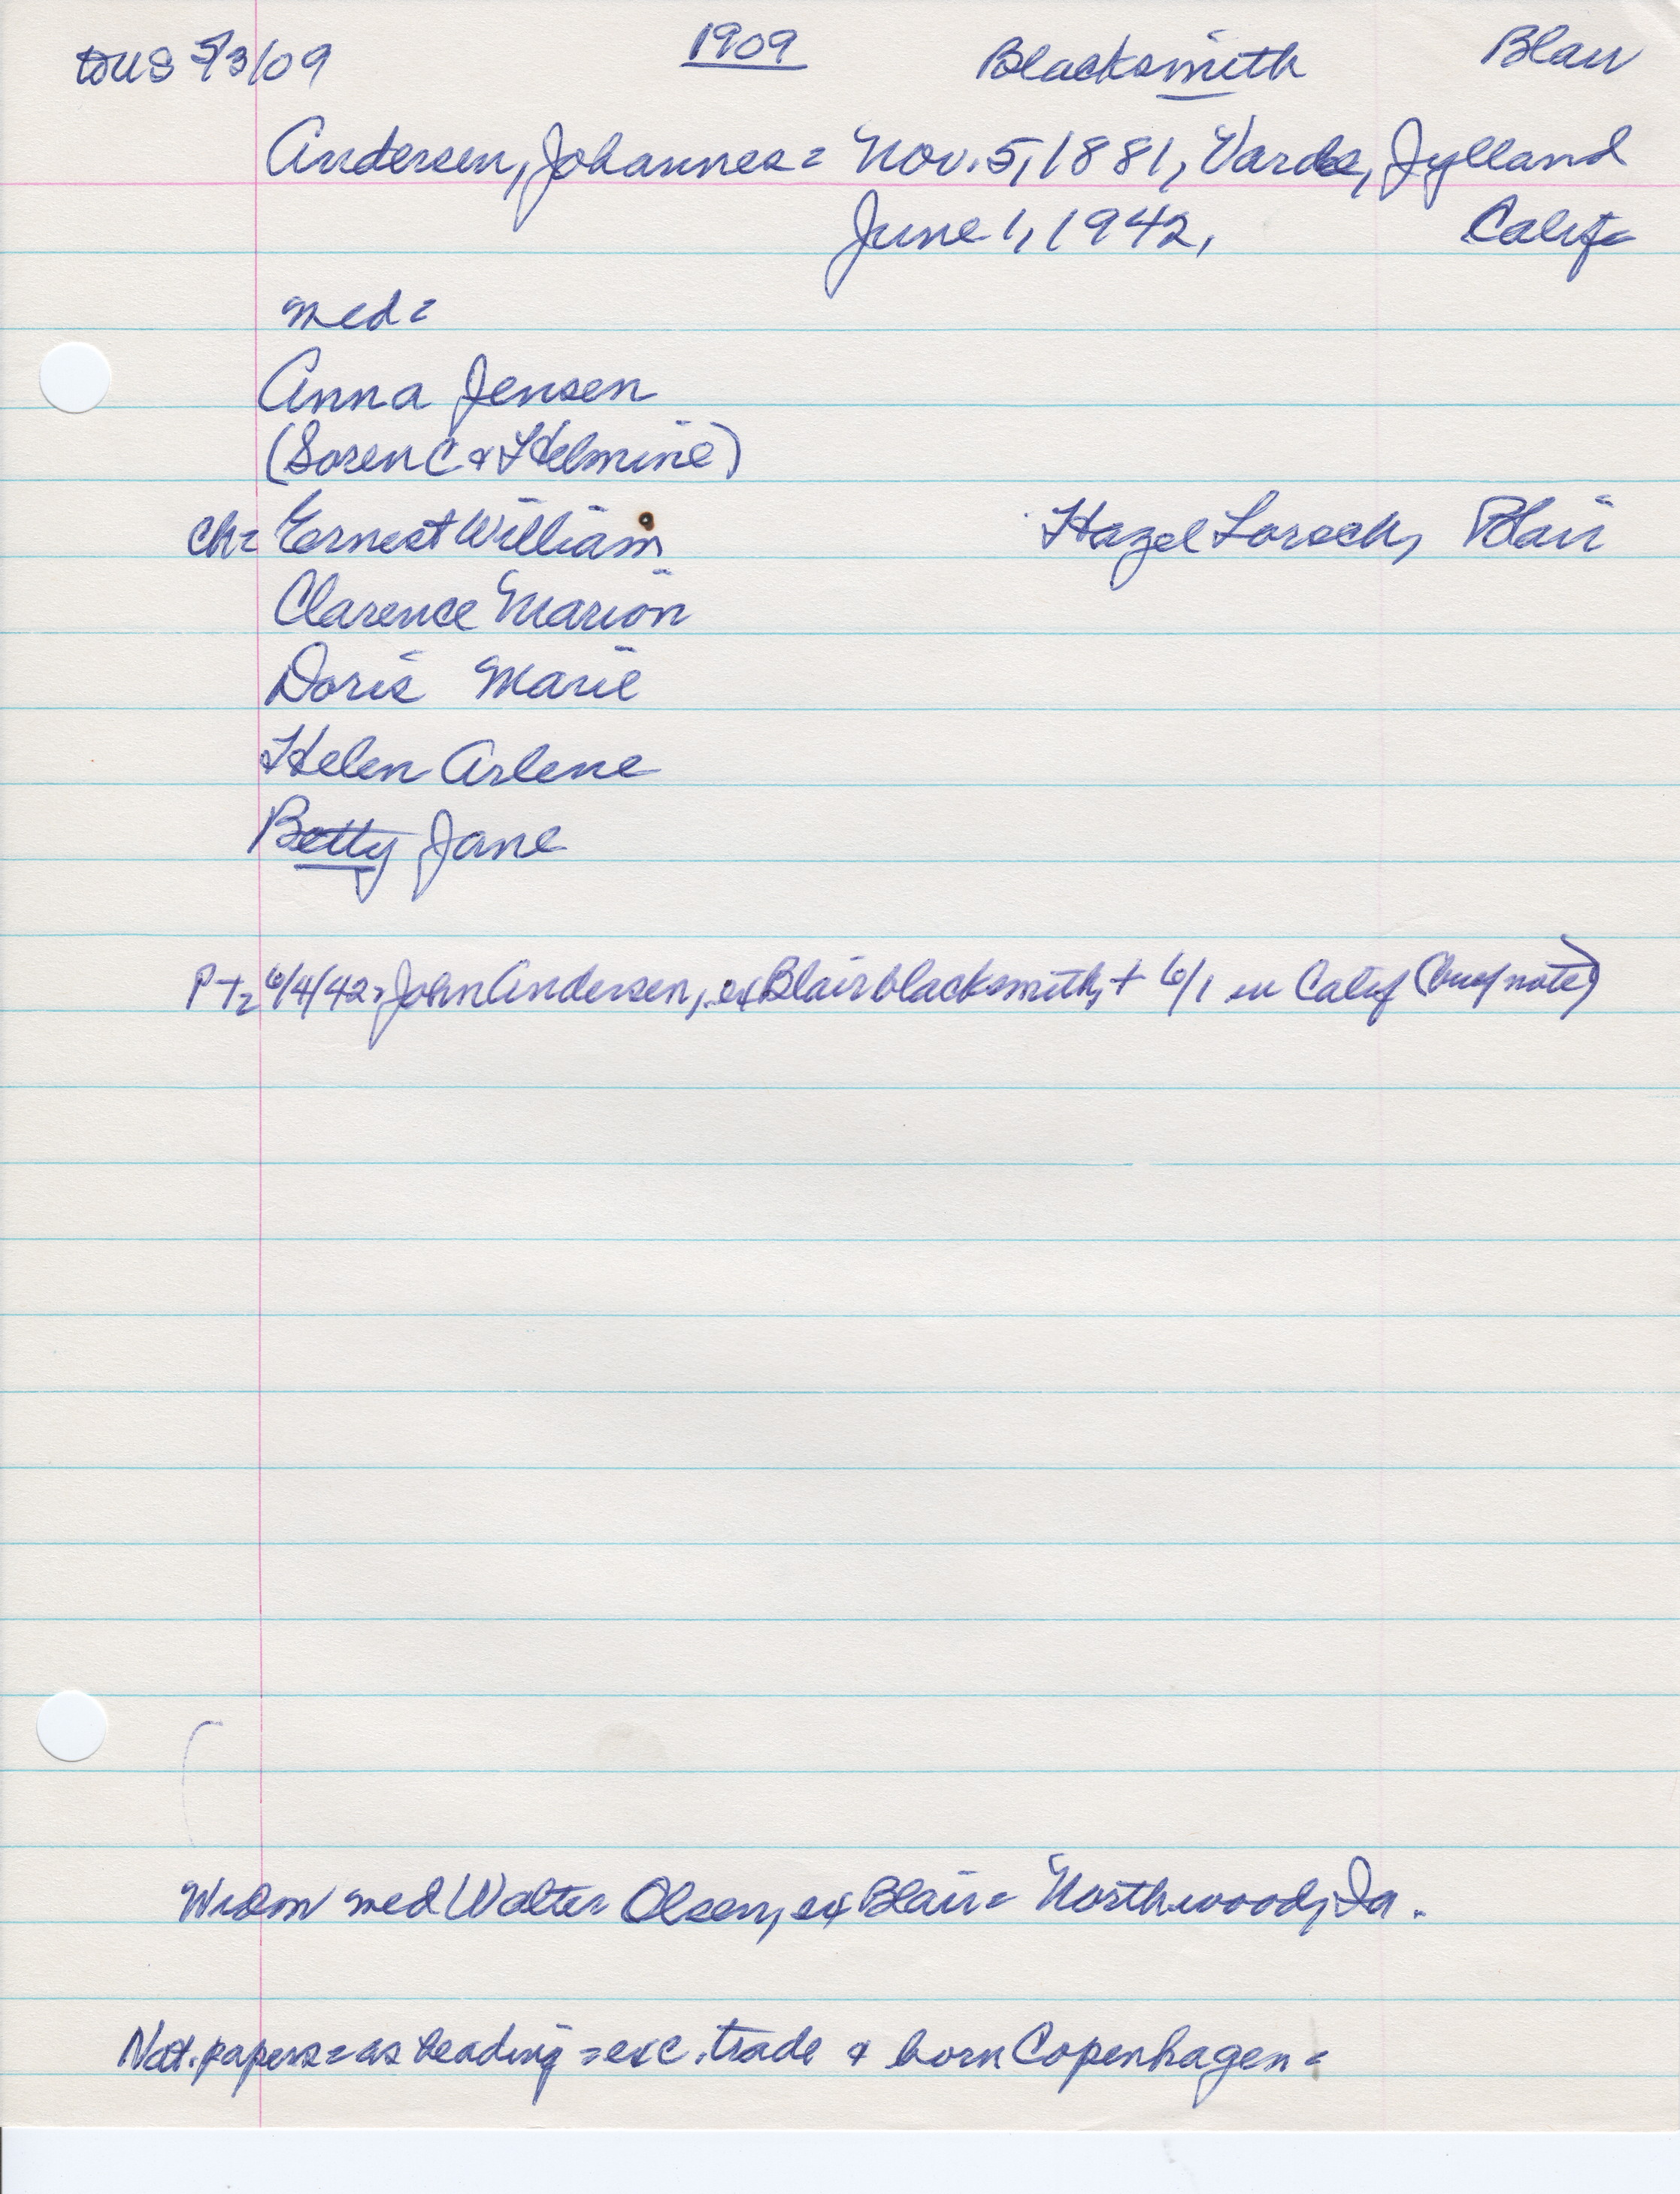 toUS 5/3/09 1909 Blacksmith Blair
Andersen, Johannes= Nov. 5, 1881, Varde, Jylland
June 1, 1942, Calif
med=
Anna Jensen
(Soren C & Helmine)
ch= Ernest William Hazel Lorsch, Blair
Clarence Marion
Doris Marie
Helen Arlene
Betty Jane
PT= 6/4/42=John Andersen, ex Blair blacksmith, + 6/1 in Calif (brief note)
Widow med Walter Olsen, ex Blair= Northwood, Ia.
Nat. papers=as heading=exc. trade & born Copenhagen=